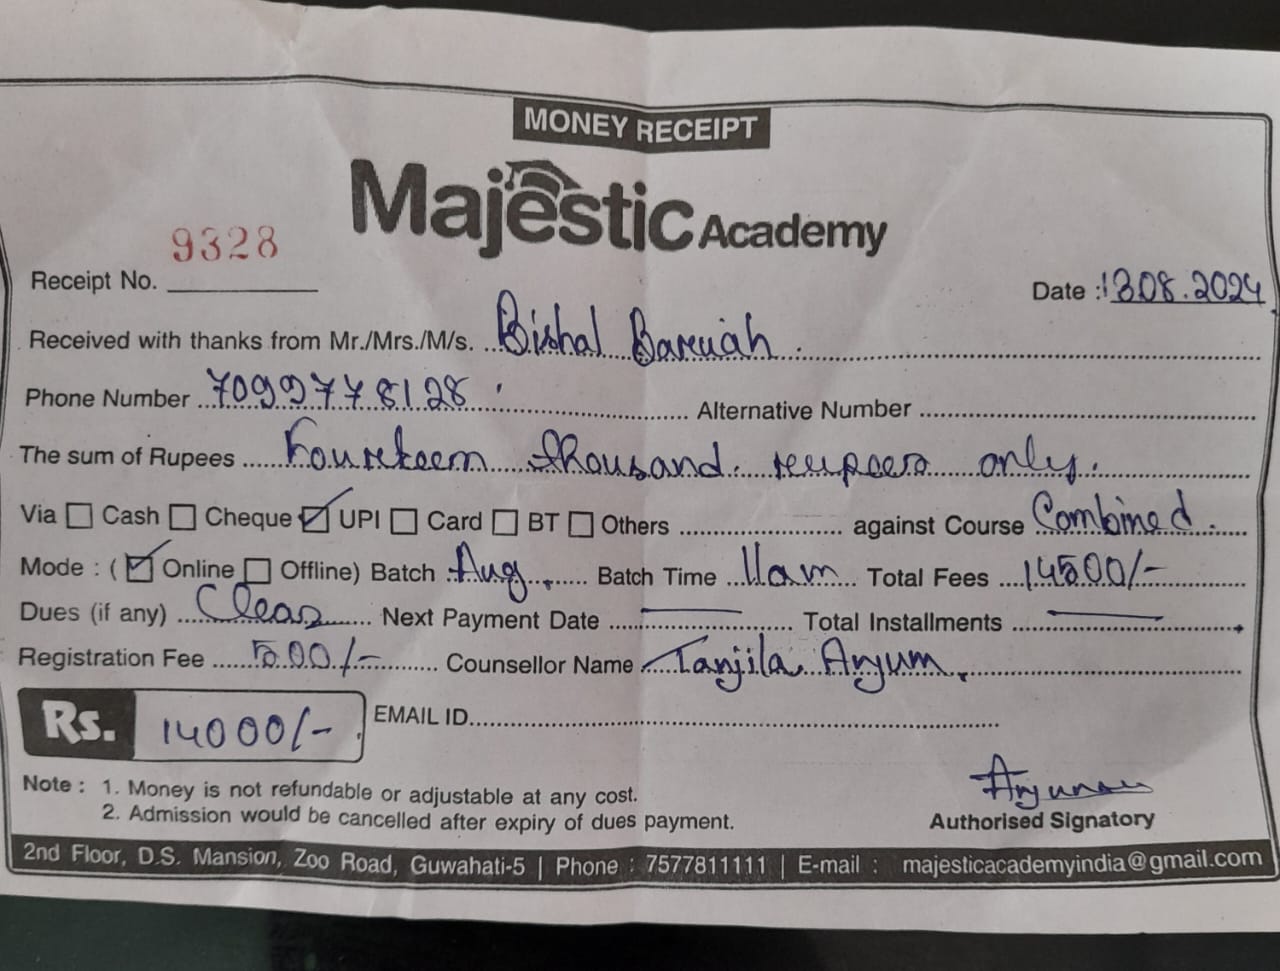 MONEY RECEIPT
Majestic Academy
9328
Receipt No. Date : 13.08.2024
Received with thanks from Mr./Mrs./M/s. Bishal Baruah.
Phone Number 7099778128 Alternative Number
The sum of Rupees Fourteen thousand rupees only.
Via Cash Cheque UPI Card BT Others against Course Combined.
Mode : ( Online Offline) Batch Aug. Batch Time 11am Total Fees 14500/-
Dues (if any) Clear Next Payment Date Total Installments
Registration Fee 500/- Counsellor Name Tanjila Anjum.
Rs. 14000/- EMAIL ID
Note : 1. Money is not refundable or adjustable at any cost.
2. Admission would be cancelled after expiry of dues payment.
Anjuman
Authorised Signatory
2nd Floor, D.S. Mansion, Zoo Road, Guwahati-5 | Phone : 7577811111 | E-mail : majesticacademyindia@gmail.com